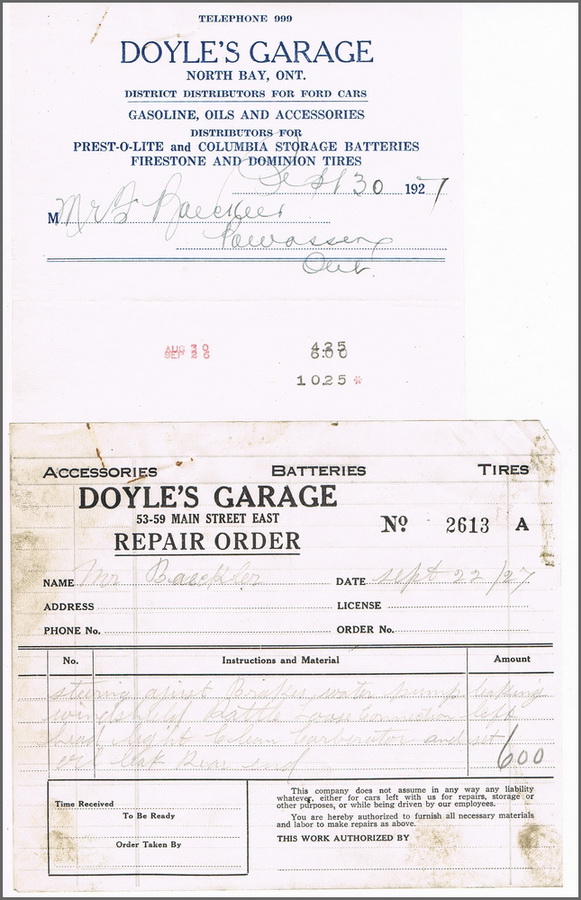 TELEPHONE 999
DOYLE'S GARAGE
NORTH BAY, ONT.
DISTRICT DISTRIBUTORS FOR FORD CARS
GASOLINE, OILS AND ACCESSORIES
DISTRIBUTORS FOR
PREST-O-LITE and COLUMBIA STORAGE BATTERIES
FIRESTONE AND DOMINION TIRES
Sept 30 1927
M Mr Baeckler
Powassan
Ont.
AUG 30 4.25
SEP 26 6.00
10.25 *
ACCESSORIES BATTERIES TIRES
DOYLE'S GARAGE
53-59 MAIN STREET EAST
REPAIR ORDER
No 2613 A
NAME Mr Baeckler DATE Sept 22/27
ADDRESS LICENSE
PHONE No. ORDER No.
No. Instructions and Material Amount
Brakes water pump leaking
rattle loose connection left
head light clean carburetor and set
oil leak Rear end 6.00
Time Received
To Be Ready
Order Taken By
This company does not assume in any way any liability
whatever, either for cars left with us for repairs, storage or
other purposes, or while being driven by our employees.
You are hereby authorized to furnish all necessary materials
and labor to make repairs as above.
THIS WORK AUTHORIZED BY